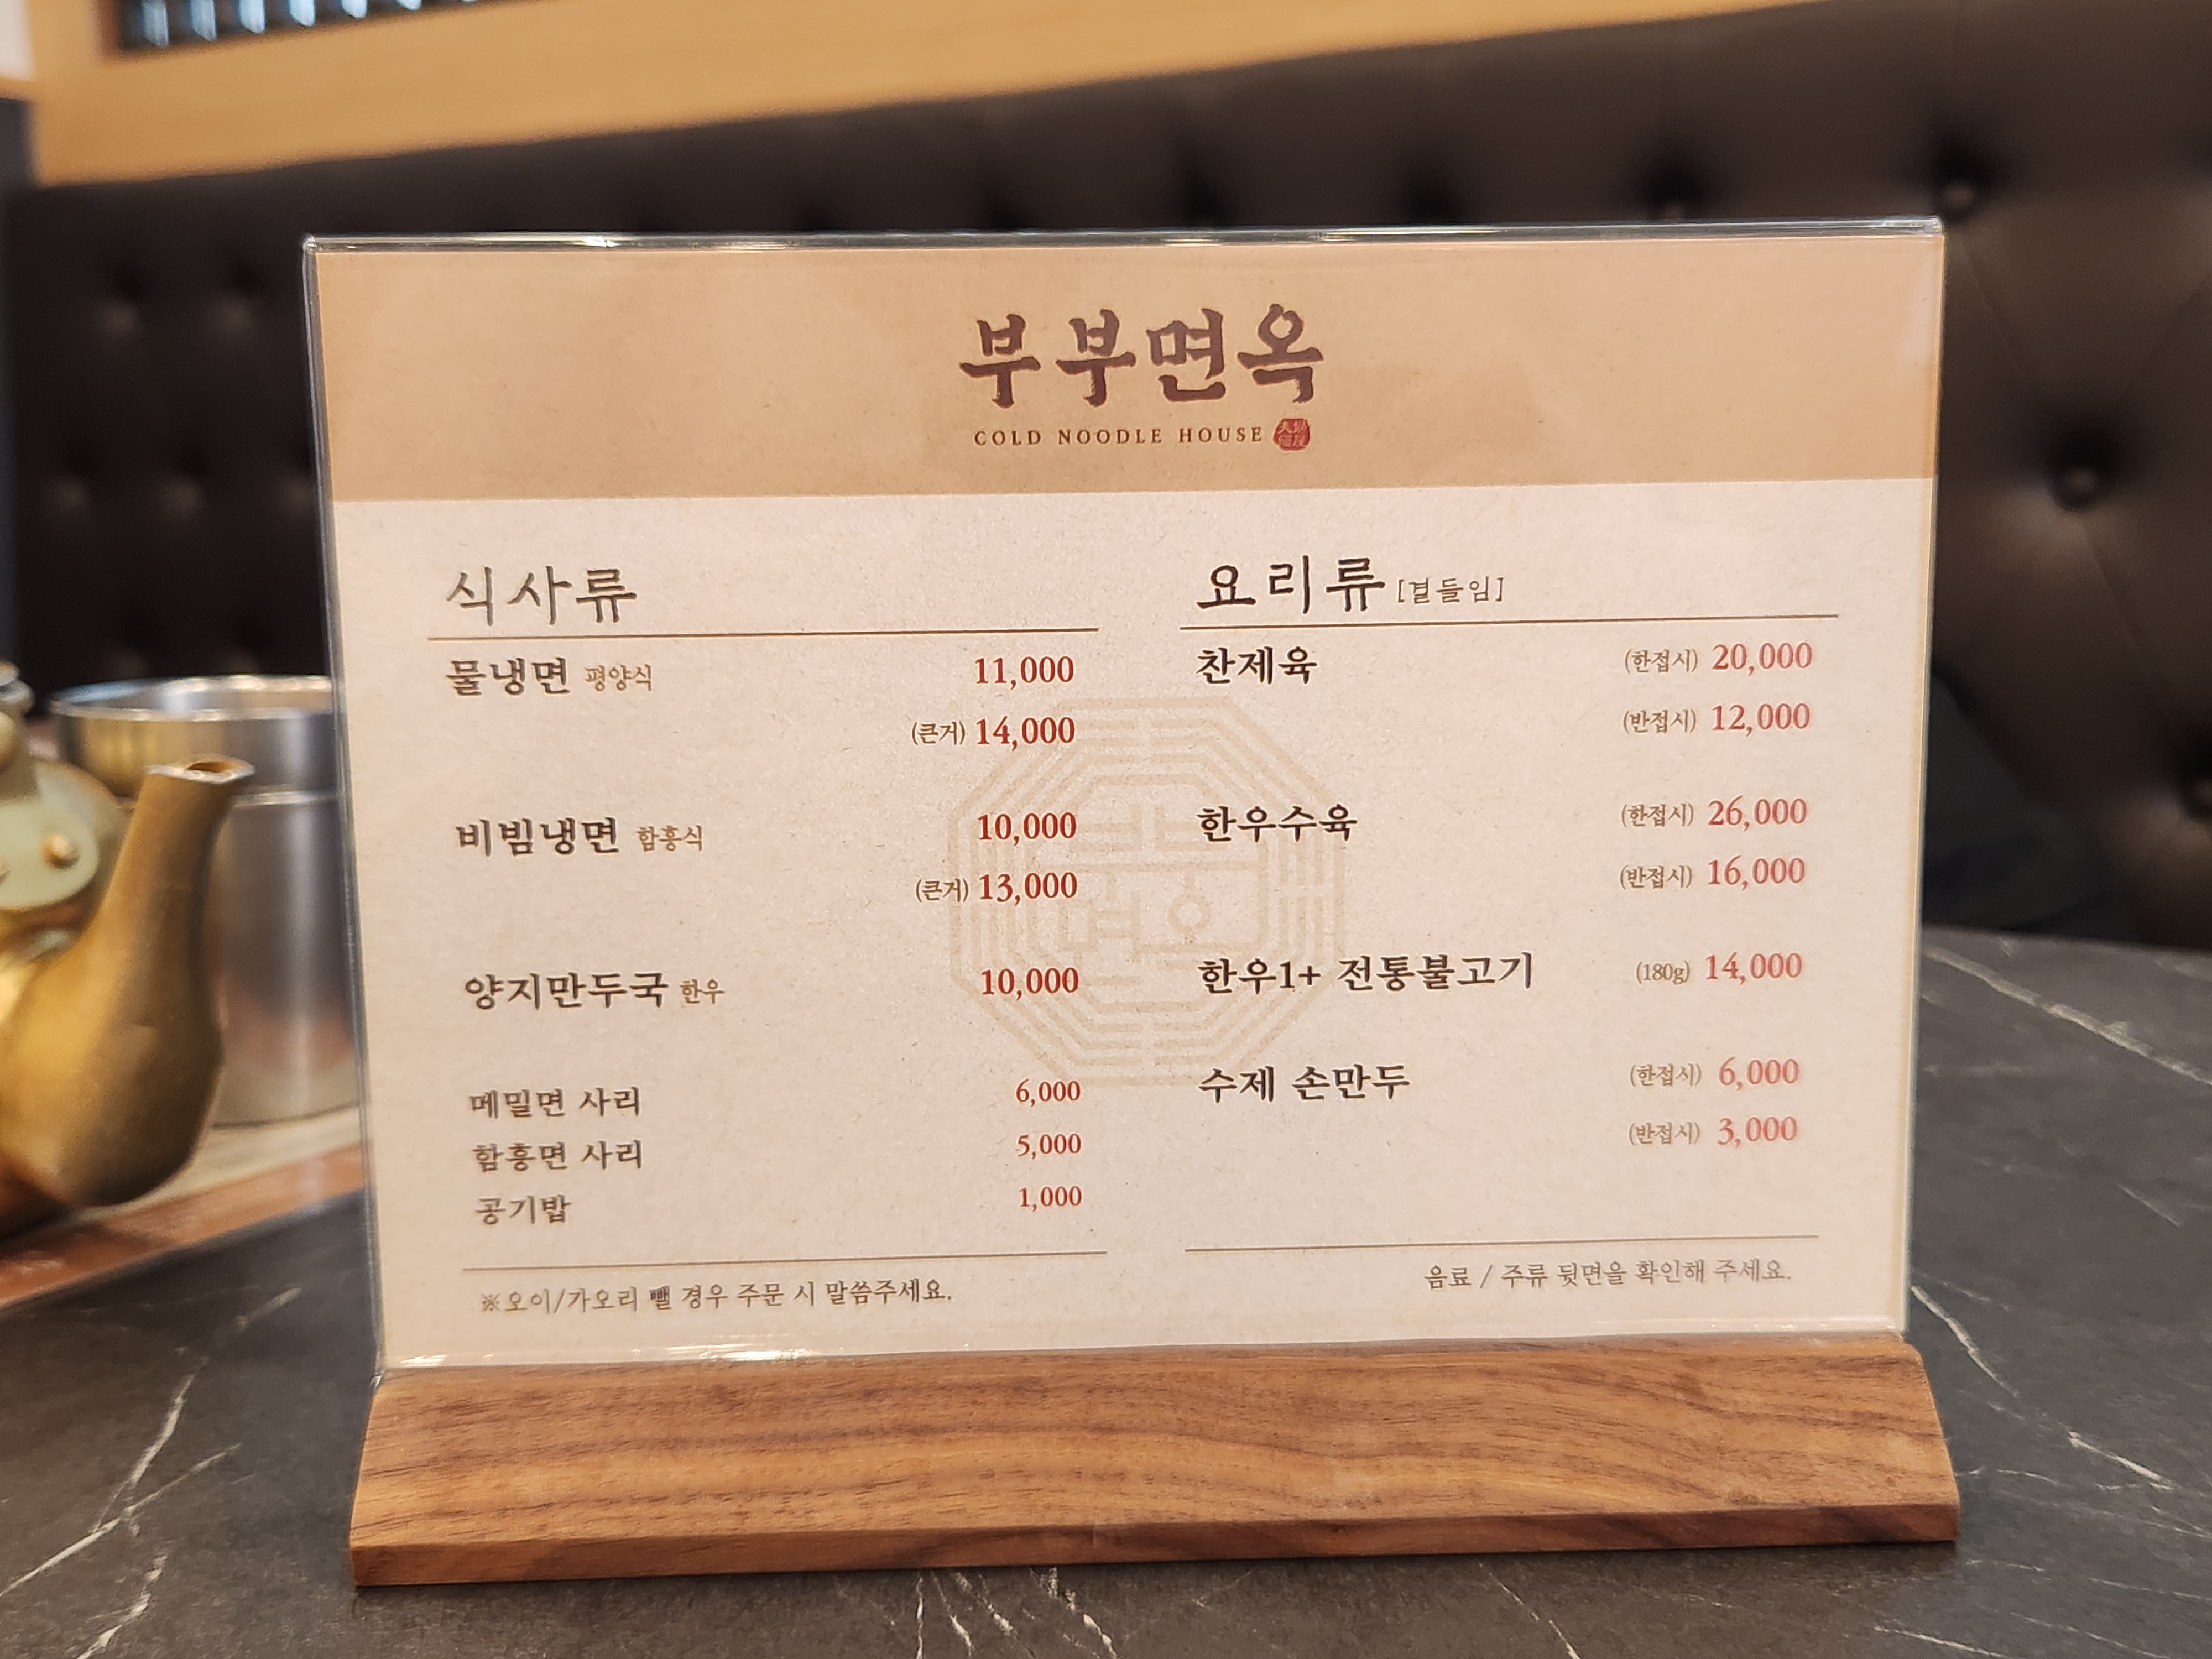 부부면옥
COLD NOODLE HOUSE
식사류
물냉면 평양식 11,000
(큰거) 14,000
비빔냉면 함흥식 10,000
(큰거) 13,000
양지만두국 한우 10,000
메밀면 사리 6,000
함흥면 사리 5,000
공기밥 1,000
※오이/가오리 뺄 경우 주문 시 말씀주세요.
요리류 [곁들임]
찬제육 (한접시) 20,000
(반접시) 12,000
한우수육 (한접시) 26,000
(반접시) 16,000
한우1+ 전통불고기 (180g) 14,000
수제 손만두 (한접시) 6,000
(반접시) 3,000
음료 / 주류 뒷면을 확인해 주세요.
부부
면옥